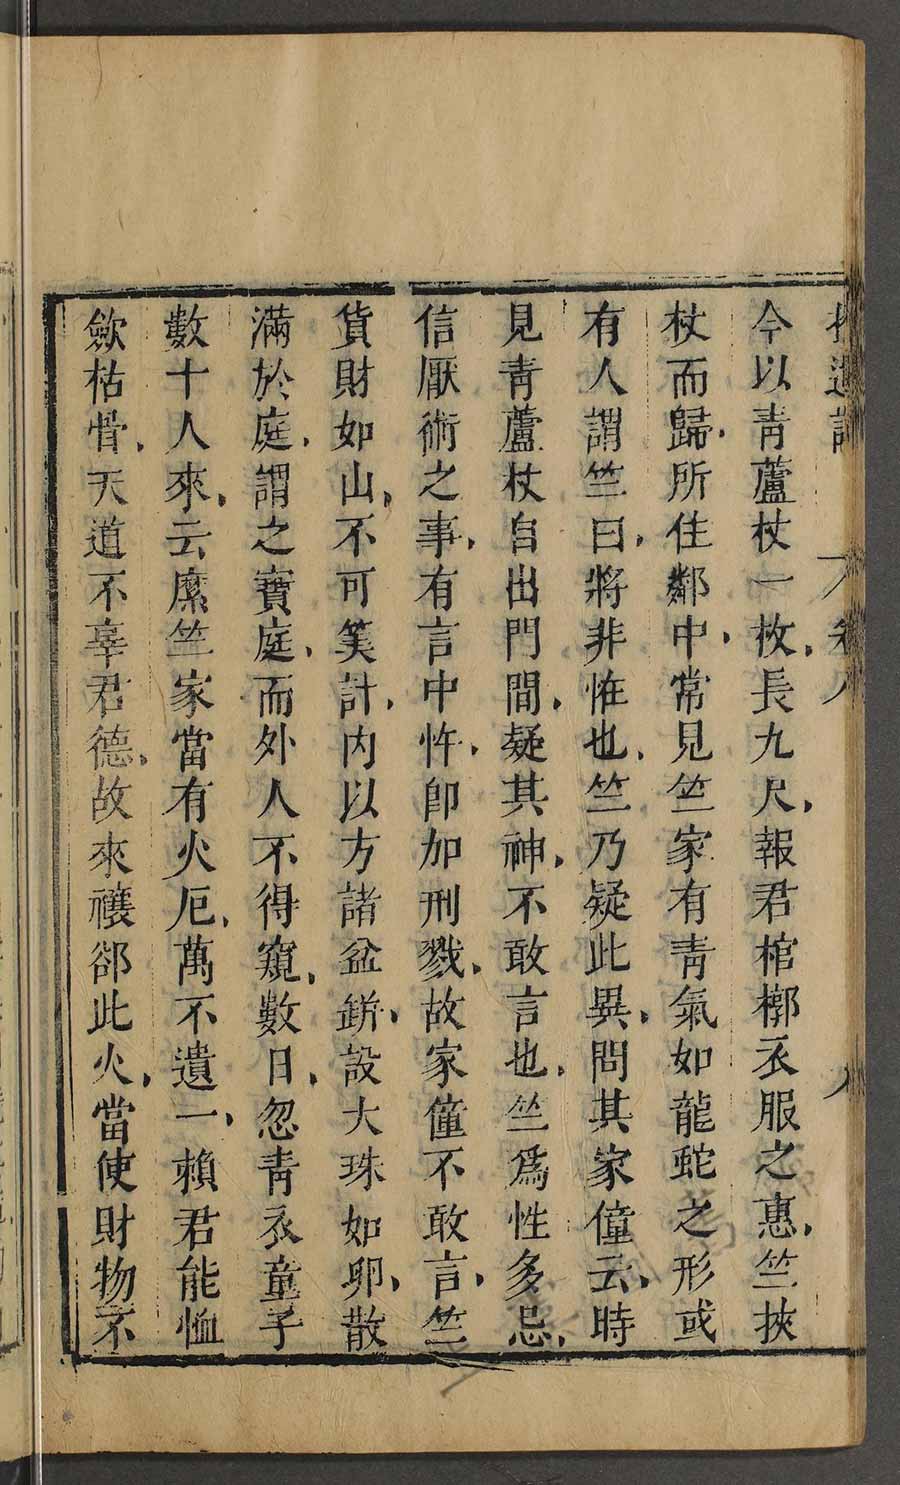 拾遺記 卷八 八
今以青蘆杖一枚，長九尺，報君棺槨衣服之惠，竺挾
杖而歸，所住鄰中，常見竺家有青氣如龍蛇之形或
有人謂竺曰，將非恠也，竺乃疑此異，問其家僮云，時
見青蘆杖自出門間，疑其神，不敢言也，竺爲性多忌，
信厭術之事，有言中忤，卽加刑戮，故家僮不敢言，竺
貨財如山，不可筭計，内以方諸盆缾，設大珠如卵，散
滿於庭，謂之寶庭，而外人不得窺，數日，忽青衣童子
數十人來，云糜竺家當有火厄，萬不遺一，賴君能恤
斂枯骨，天道不辜君德，故來禳郤此火，當使財物不